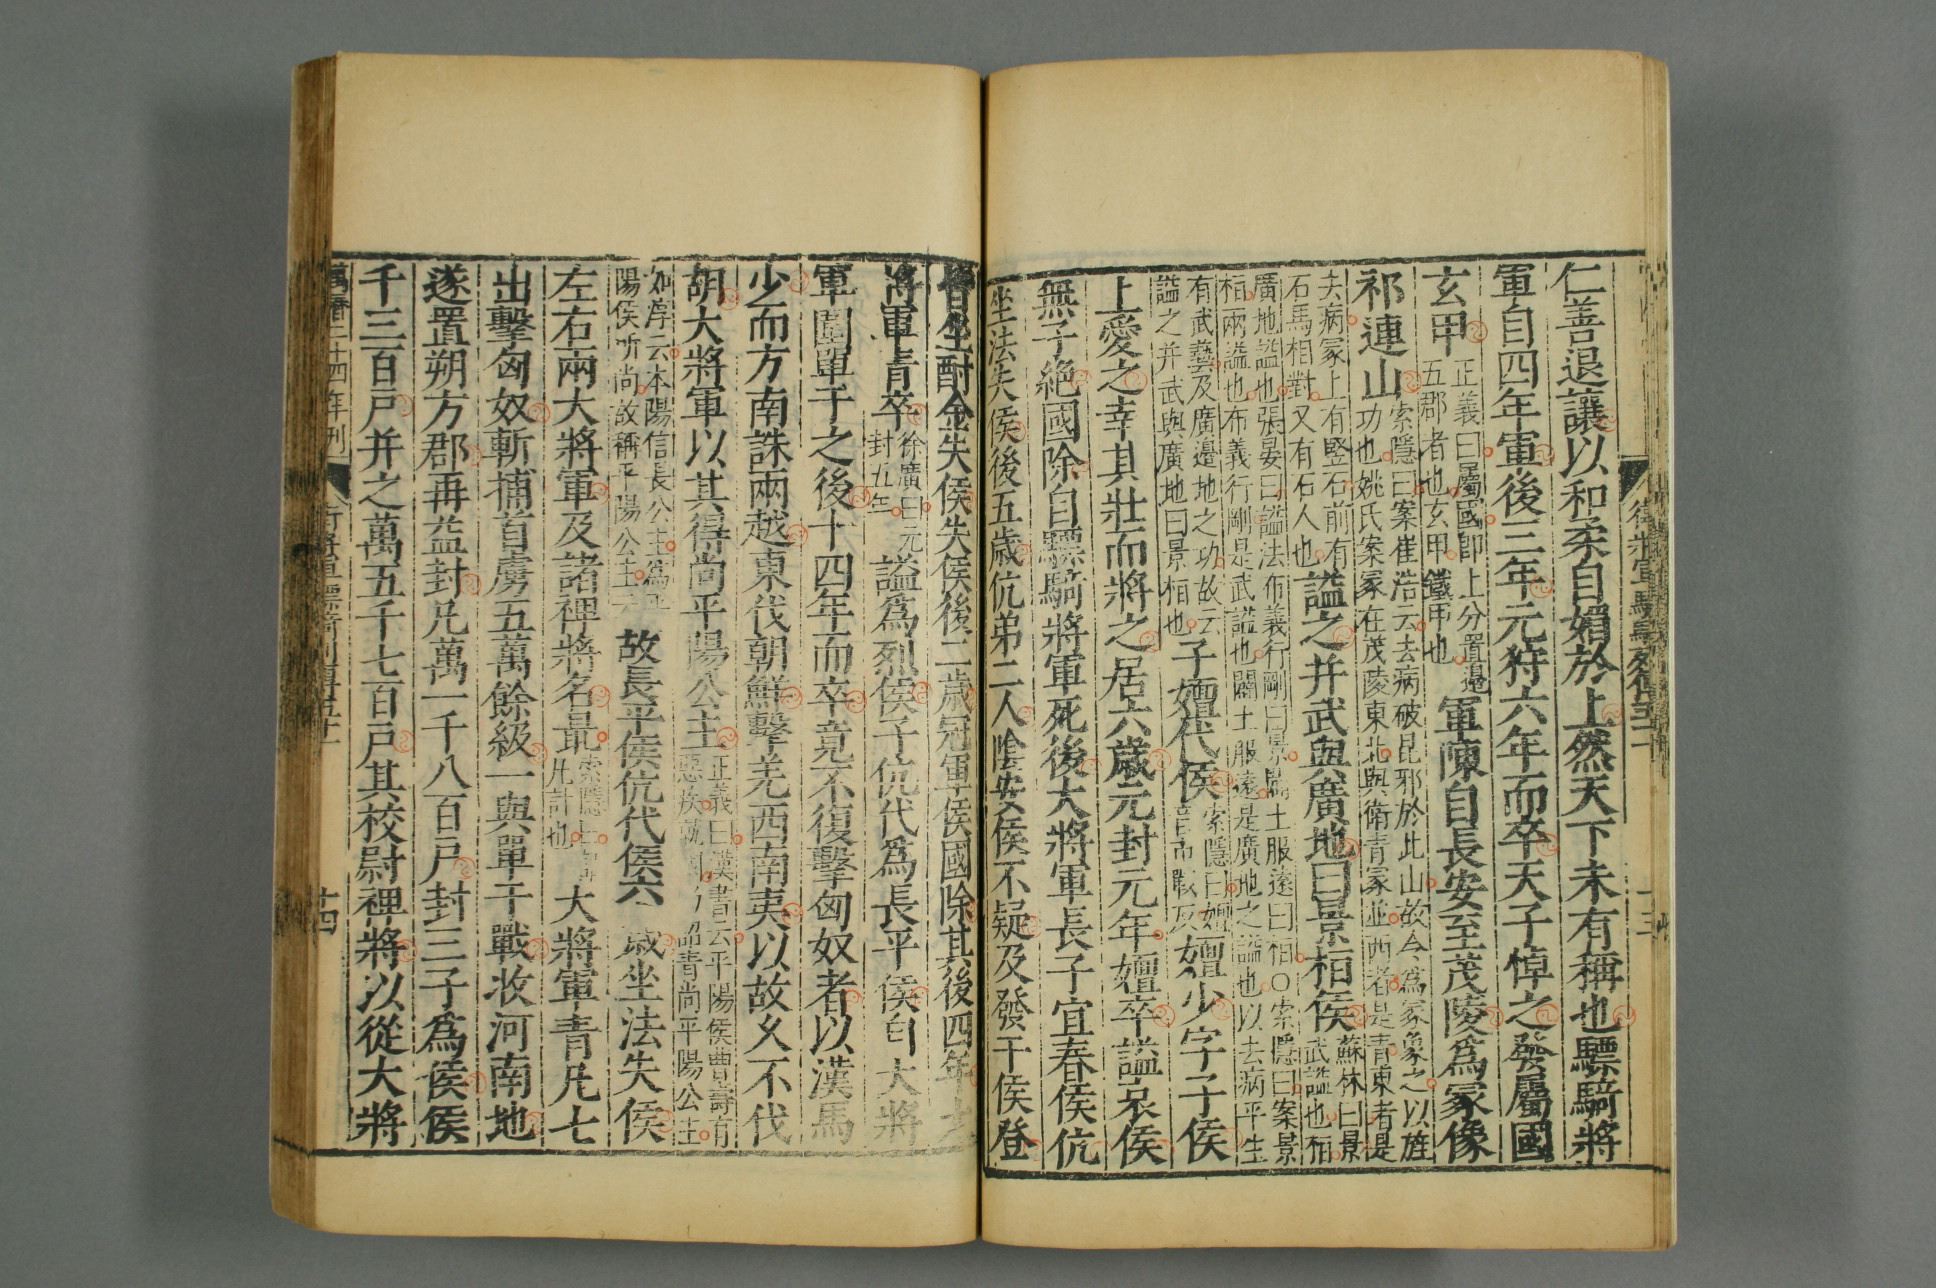 仁善退讓以和柔自媚於上然天下未有稱也驃騎將
軍自四年軍後三年元狩六年而卒天子悼之發屬國
玄甲正義曰屬國即上分置邊五郡者也玄甲鐵甲也軍陳自長安至茂陵爲冢像
祁連山索隱曰案崔浩云去病破昆邪於此山故今爲冢象之以旌功也姚氏案冢在茂陵東北與衛青冢並西者是青東者是
去病冢上有竪石前有石馬相對又有石人也謚之并武與廣地曰景桓侯蘇林曰景武謚也桓
廣地謚也張晏曰謚法布義行剛曰景闢土服遠曰桓○索隱曰案景桓兩謚也布義行剛是武謚也闢土服遠是廣地之謚也以去病平生
有武藝及廣邊地之功故云謚之并武與廣地曰景桓也子嬗代侯索隱曰嬗音市戰反嬗少字子侯
上愛之幸其壯而將之居六歲元封元年嬗卒謚哀侯
無子絶國除自驃騎將軍死後大將軍長子宜春侯伉
坐法失侯後五歲伉弟二人陰安侯不疑及發干侯登
皆坐酎金失侯失侯後二歲冠軍侯國除其後四年大
將軍青卒徐廣曰元封五年謚爲烈侯子伉代爲長平侯自大將
軍圍單于之後十四年而卒竟不復擊匈奴者以漢馬
少而方南誅兩越東伐朝鮮擊羌西南夷以故久不伐
胡大將軍以其得尚平陽公主正義曰漢書云平陽侯曹壽有惡疾就國乃詔青尚平陽公主
如淳云本陽信長公主爲平陽侯所尚故稱平陽公主云故長平侯伉代侯六歲坐法失侯
左右兩大將軍及諸裨將名最索隱曰謂凡計也大將軍青凡七
出擊匈奴斬捕首虜五萬餘級一與單于戰收河南地
遂置朔方郡再益封凡萬一千八百戶封三子爲侯侯
千三百戶并之萬五千七百戶其校尉裨將以從大將
萬曆二十四年刊
將軍驃騎列傳五十一
十四